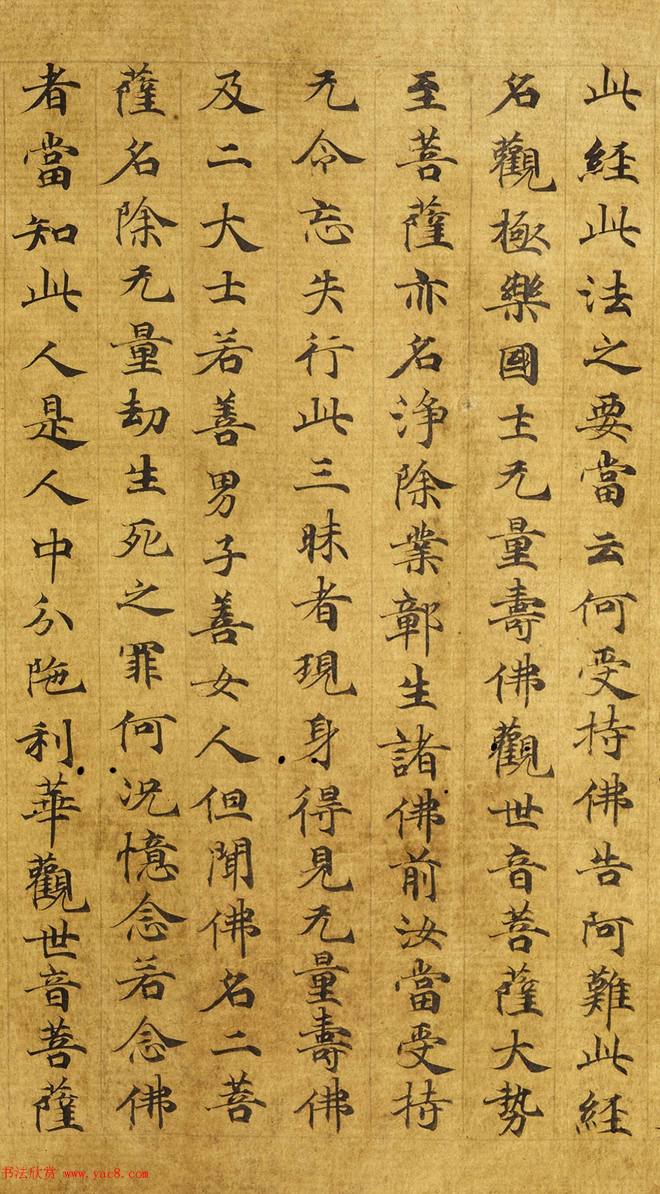 此経此法之要當云何受持佛告阿難此経
名觀極樂國土无量壽佛觀世音菩薩大勢
至菩薩亦名浄除業鄣生諸佛前汝當受持
无令忘失行此三昧者現身得見无量壽佛
及二大士若善男子善女人但聞佛名二菩
薩名除无量劫生死之罪何況憶念若念佛
者當知此人是人中分陁利華觀世音菩薩
书法欣赏 www.yac8.com